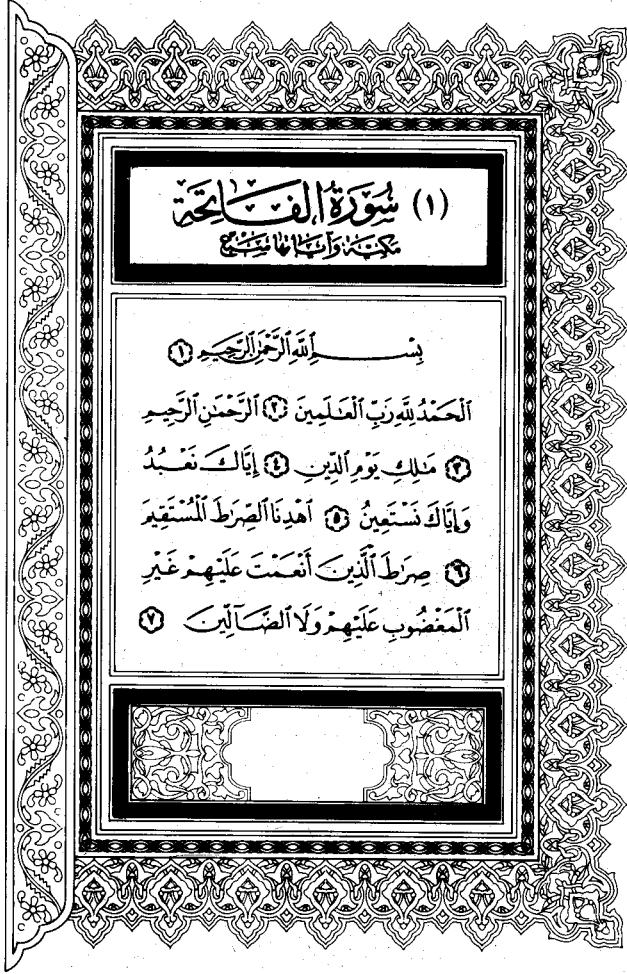 (١) سُورَةُ الفَاتِحَة
مكيّة وَآيَاتها سَبْع
بِسْمِ ٱللَّهِ ٱلرَّحْمَٰنِ ٱلرَّحِيمِ ١
ٱلْحَمْدُ لِلَّهِ رَبِّ ٱلْعَٰلَمِينَ ٢ ٱلرَّحْمَٰنِ ٱلرَّحِيمِ
٣ مَٰلِكِ يَوْمِ ٱلدِّينِ ٤ إِيَّاكَ نَعْبُدُ
وَإِيَّاكَ نَسْتَعِينُ ٥ ٱهْدِنَا ٱلصِّرَٰطَ ٱلْمُسْتَقِيمَ
٦ صِرَٰطَ ٱلَّذِينَ أَنْعَمْتَ عَلَيْهِمْ غَيْرِ
ٱلْمَغْضُوبِ عَلَيْهِمْ وَلَا ٱلضَّآلِّينَ ٧